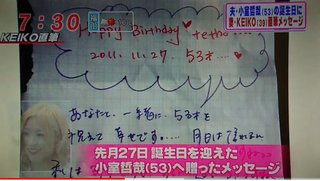 7:30
KEIKO直筆
夫・小室哲哉(53)の誕生日に
妻・KEIKO(39)直筆メッセージ
Happy Birthday
2011.11.27. 53才…
あなたと、一緒に、53才を
幸せです
先月27日 誕生日を迎えた
小室哲哉(53)へ贈ったメッセージ